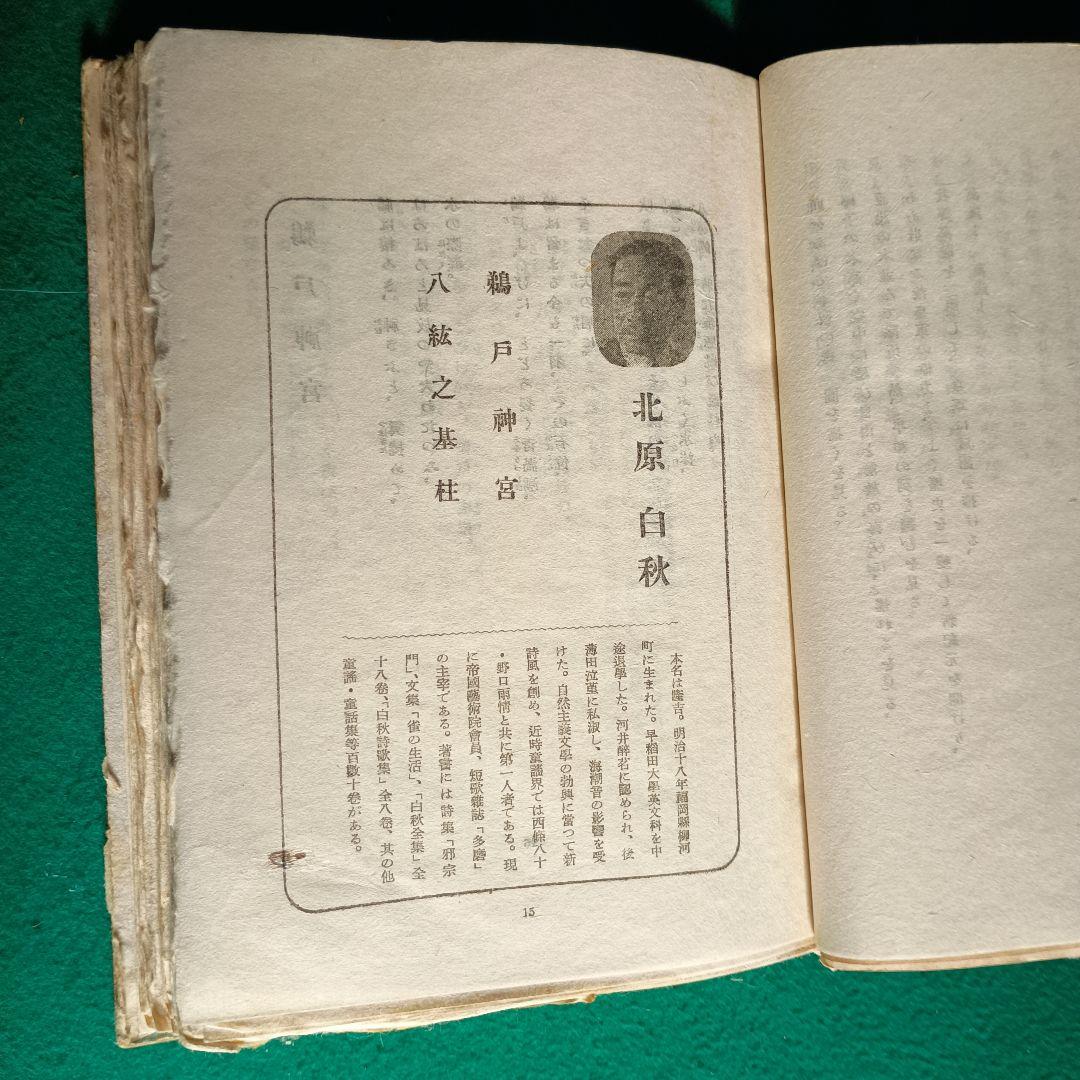 北原白秋
鵜戸神宮
八紘之基柱
本名は隆吉。明治十八年福岡縣柳河
町に生まれた。早稻田大學英文科を中
途退學した。河井醉茗に認められ、後
薄田泣菫に私淑し、海潮音の影響を受
けた。自然主義文學の勃興に當つて新
詩風を創め、近時童謠界では西條八十
・野口雨情と共に第一人者である。現
に帝國藝術院會員、短歌雜誌「多磨」
の主宰である。著書には詩集「邪宗
門」、文集「雀の生活」、「白秋全集」全
十八卷、「白秋詩歌集」全八卷、其の他
童謠・童話集等百數十卷がある。
15